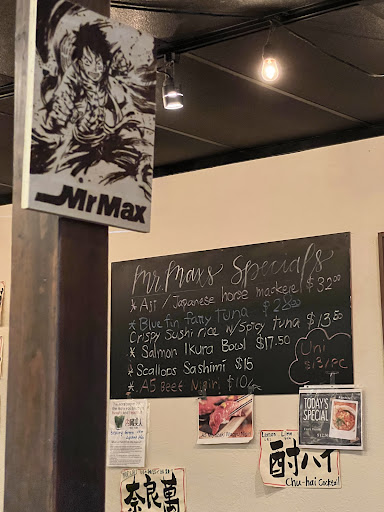 MrMax
Mr.Maxs Specials
* AJI / Japanese horse mackerel $32.00
* Blue fin fatty tuna $28.00
Crispy Sushi rice w/Spicy tuna $13.50
* Salmon Ikura Bowl $17.50
* Scallops Sashimi $15
* A5 Beef Nigiri $10
Uni
TODAY'S
SPECIAL
Lime
酎ハイ
Chu-hai Cocktail
奈良萬